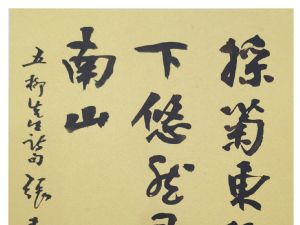 採菊東
下悠然
南山
五柳先生詩句 張